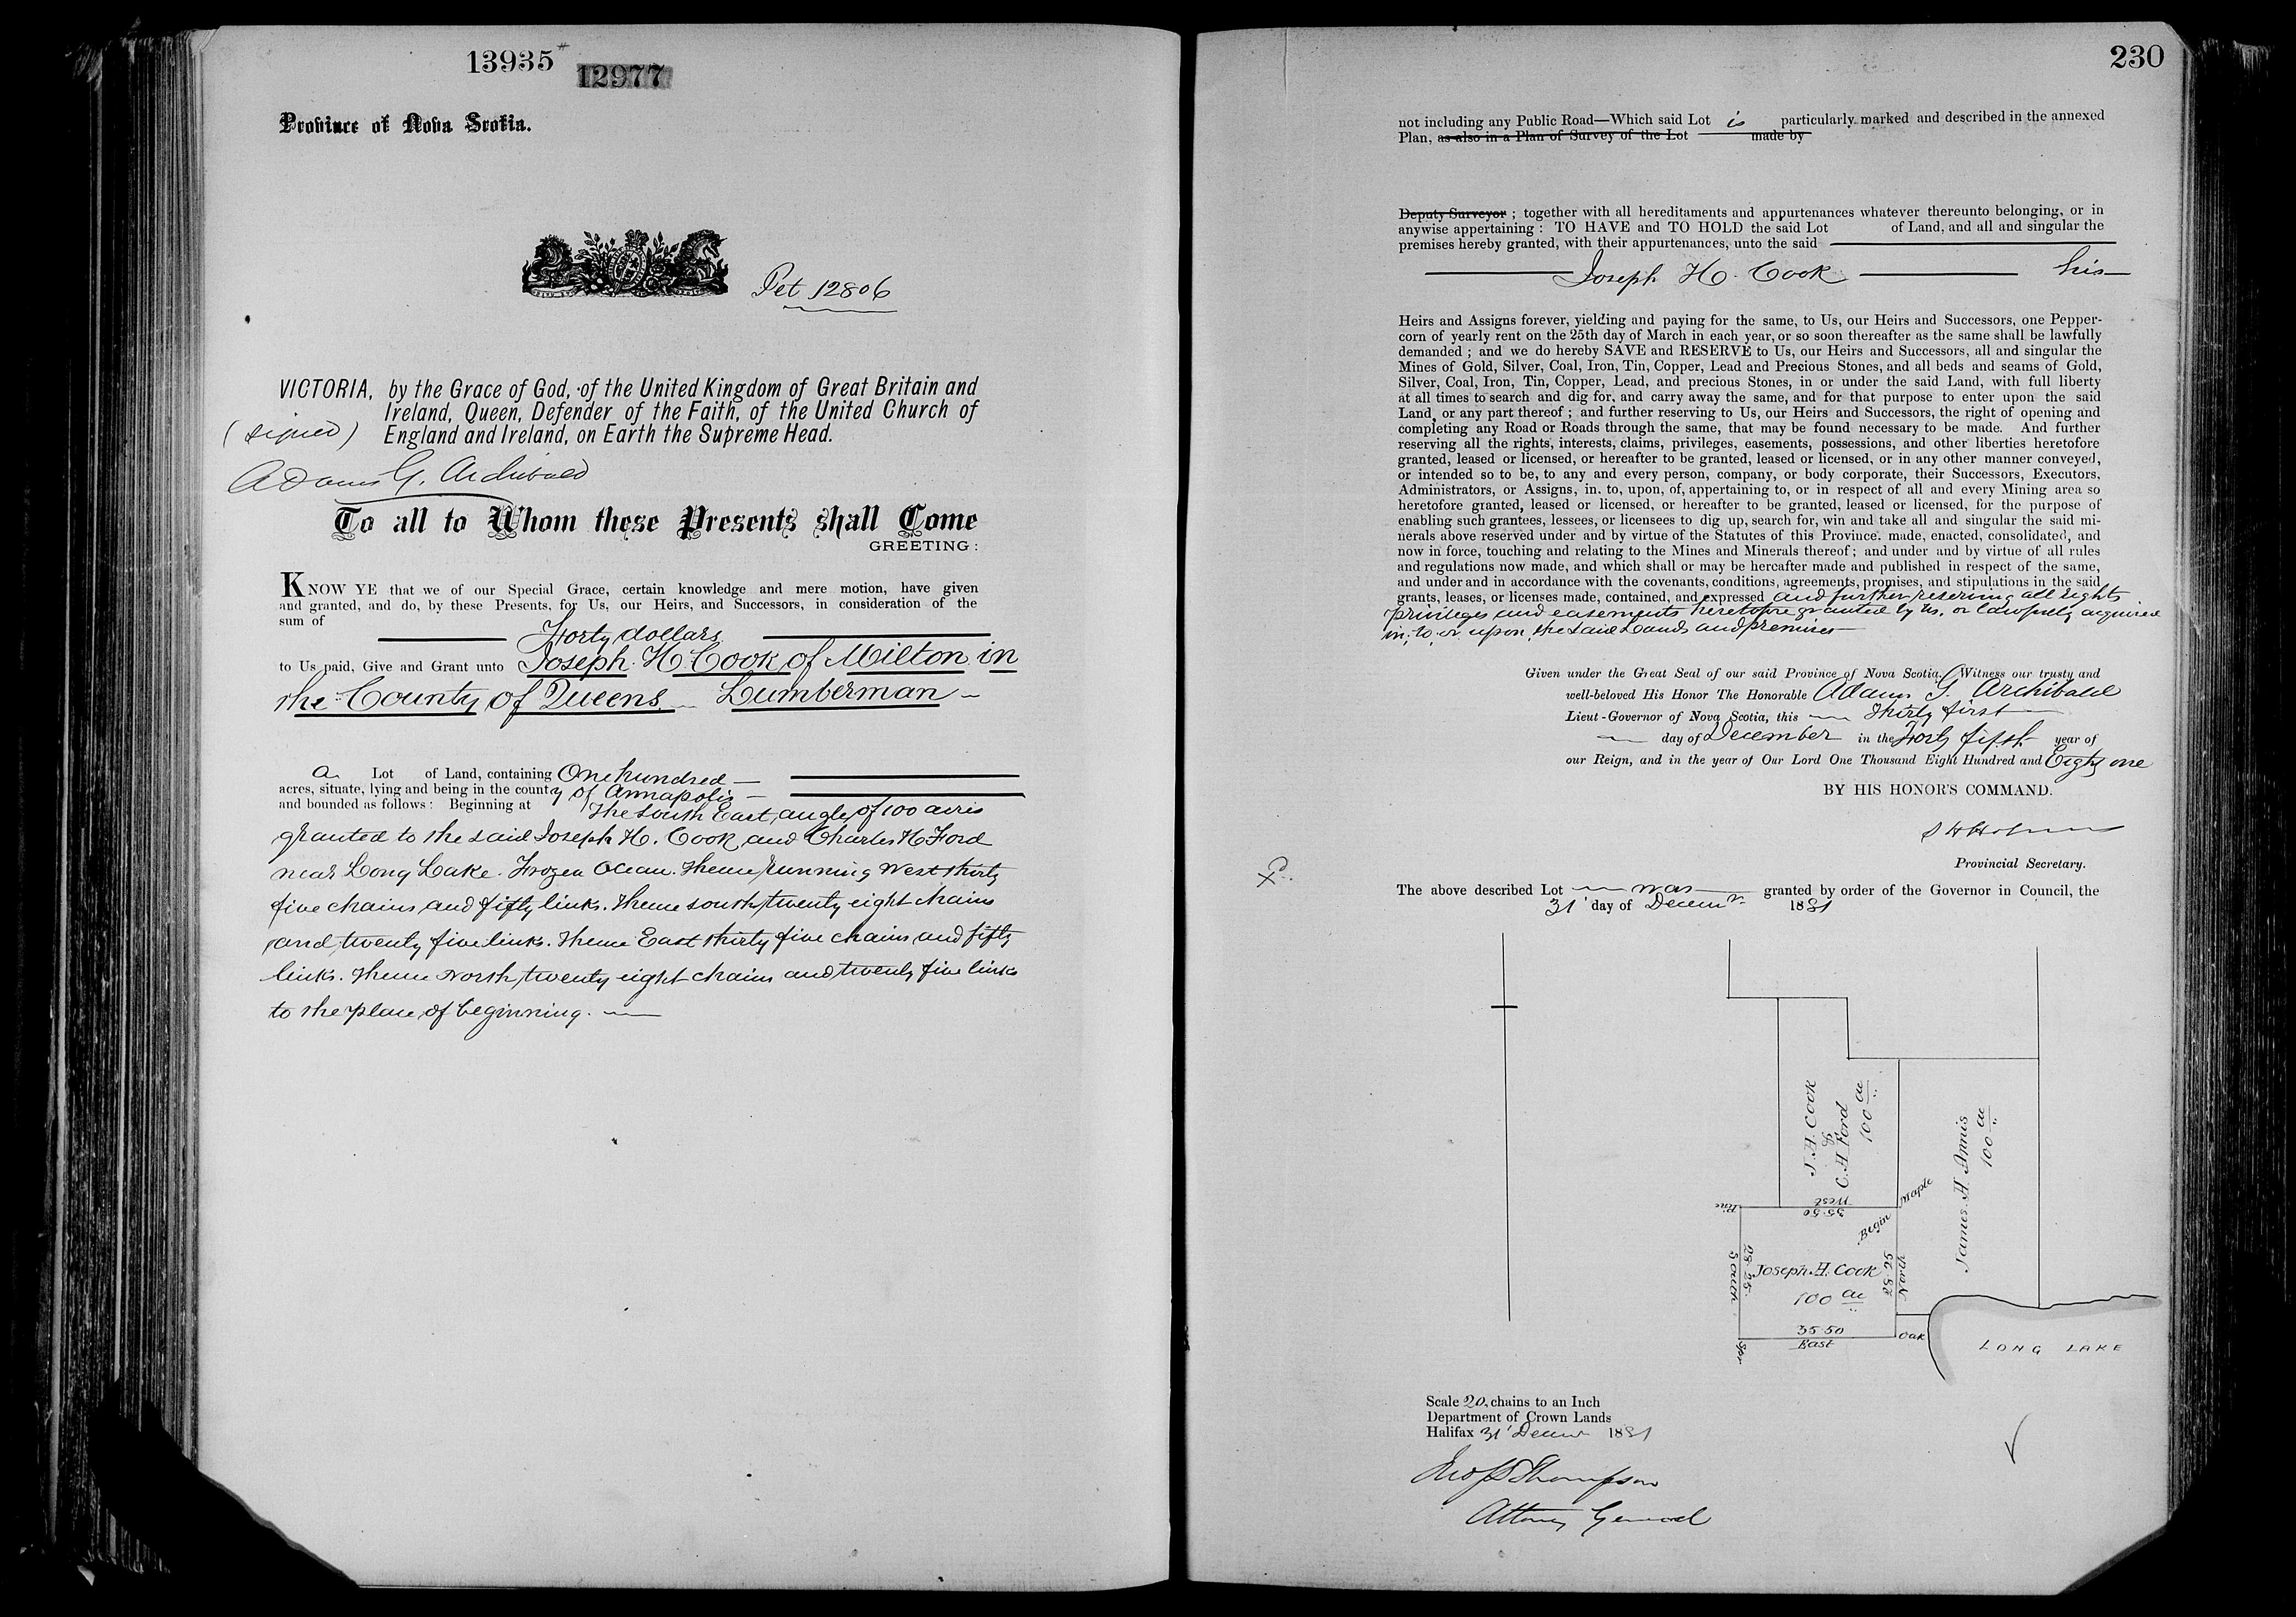 13935
12977
Province of Nova Scotia.
Pet 12806
VICTORIA, by the Grace of God, of the United Kingdom of Great Britain and
Ireland, Queen, Defender of the Faith, of the United Church of
England and Ireland, on Earth the Supreme Head.
(signed)
Adams G. Archibald
To all to Whom these Presents shall Come
GREETING:
KNOW YE that we of our Special Grace, certain knowledge and mere motion, have given
and granted, and do, by these Presents, for Us, our Heirs, and Successors, in consideration of the
sum of
Forty dollars
to Us paid, Give and Grant unto Joseph H. Cook of Milton in
the County of Queens Lumberman
a Lot of Land, containing One hundred
acres, situate, lying and being in the county of Annapolis
and bounded as follows: Beginning at the South East angle of 100 acres
granted to the said Joseph H. Cook and Charles H Ford
near Long Lake. Frozen Ocean. Thence running West thirty
five chains and fifty links. Thence south twenty eight chains
and twenty five links. Thence East thirty five chains and fifty
links. Thence North twenty eight chains and twenty five links
to the place of beginning.
230
not including any Public Road—Which said Lot is particularly marked and described in the annexed
Plan, as also in a Plan of Survey of the Lot made by
Deputy Surveyor; together with all hereditaments and appurtenances whatever thereunto belonging, or in
anywise appertaining: TO HAVE and TO HOLD the said Lot of Land, and all and singular the
premises hereby granted, with their appurtenances, unto the said
Joseph H. Cook his
Heirs and Assigns forever, yielding and paying for the same, to Us, our Heirs and Successors, one Pepper-
corn of yearly rent on the 25th day of March in each year, or so soon thereafter as the same shall be lawfully
demanded; and we do hereby SAVE and RESERVE to Us, our Heirs and Successors, all and singular the
Mines of Gold, Silver, Coal, Iron, Tin, Copper, Lead and Precious Stones, and all beds and seams of Gold,
Silver, Coal, Iron, Tin, Copper, Lead, and precious Stones, in or under the said Land, with full liberty
at all times to search and dig for, and carry away the same, and for that purpose to enter upon the said
Land, or any part thereof; and further reserving to Us, our Heirs and Successors, the right of opening and
completing any Road or Roads through the same, that may be found necessary to be made. And further
reserving all the rights, interests, claims, privileges, easements, possessions, and other liberties heretofore
granted, leased or licensed, or hereafter to be granted, leased or licensed, or in any other manner conveyed,
or intended so to be, to any and every person, company, or body corporate, their Successors, Executors,
Administrators, or Assigns, in, to, upon, of, appertaining to, or in respect of all and every Mining area so
heretofore granted, leased or licensed, or hereafter to be granted, leased or licensed, for the purpose of
enabling such grantees, lessees, or licensees to dig up, search for, win and take all and singular the said mi-
nerals above reserved under and by virtue of the Statutes of this Province. made, enacted, consolidated, and
now in force, touching and relating to the Mines and Minerals thereof; and under and by virtue of all rules
and regulations now made, and which shall or may be hereafter made and published in respect of the same,
and under and in accordance with the covenants, conditions, agreements, promises, and stipulations in the said
grants, leases, or licenses made, contained, and expressed and further reserving all rights
privileges and easements heretofore granted by us, or lawfully acquired
in, to, or upon, the said Lands and premises
Given under the Great Seal of our said Province of Nova Scotia. Witness our trusty and
well-beloved His Honor The Honorable Adams G. Archibald
Lieut-Governor of Nova Scotia, this Thirty first
day of December in the Forty fifth year of
our Reign, and in the year of Our Lord One Thousand Eight Hundred and Eighty one
BY HIS HONOR'S COMMAND.
S H Holmes
Provincial Secretary.
The above described Lot was granted by order of the Governor in Council, the
31' day of Decemr 1881
J. H. Cook
&
C. H. Ford
100 ac
James H Annis
100 ac
West
35.50
Pine
Maple
Begin
South
28.25
Joseph. H. Cook
100 ac
North
28.25
35.50
East
Spr
Oak
LONG LAKE
Scale 20 chains to an Inch
Department of Crown Lands
Halifax 31' Decemr 1881
Jno S D Thompson
Attorney General